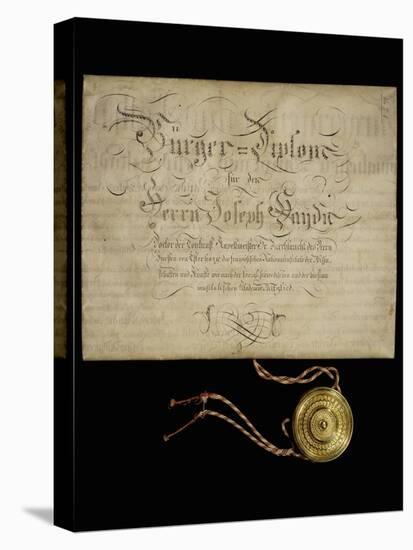 Bürger=Diplom
für den
Herrn Joseph Haydn
Doctor der Tonkunst Kapellmeister Sr Durchlaucht des Herrn
Fürsten von Esterhazy, des französischen Nationalinstituts der Wissen
schaften und Künste wie auch der königl. schwedischen und der
musikalischen Akademie Mitglied.